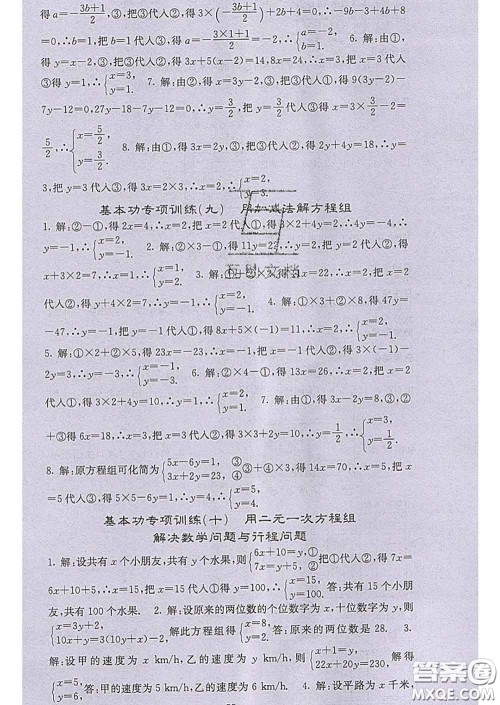 得 a=-\frac{3b+1}{2},③,把③代人②,得 3×(-\frac{3b+1}{2})+2b+4=0,∴-9b-3-4b+8
=0,∴b=1,把 b=1 代人③,得 a=-\frac{3×1+1}{2}=-2,∴{a=-2, b=1. 6. 解:由①,
得 y=x-2,③,把③代人②,得 3x+5(x-2)=14,8x=24,∴x=3,把 x=3 代人
③得 y=1,∴{x=3, y=1. 7. 解:由②,得 x=3y-2,③,把③代人①,得 9(3y-2)-
7y-12=0,27y-18-7y-12=0,∴y=\frac{3}{2},把 y=\frac{3}{2}代人③得 x=3×\frac{3}{2}-2=
\frac{5}{2},∴{x=\frac{5}{2}, y=\frac{3}{2}. 8. 解:由①,得 3x=2y,③,把③代人②,得 2y+4y=18,∴y=
3,把 y=3 代人③,得 3x=2×3,∴x=2,∴{x=2, y=3.
基本功专项训练(九) 用加减法解方程组
1. 解:②-①,得 2x=4,∴x=2,把 x=2 代人①,得 3×2+4y=2,∴4y=-4,∴
y=-1,∴{x=2, y=-1. 2. 解:②×3-①,得 11y=22,∴y=2,把 y=2 代人②,得
x+3×2=7,∴x=1,∴{x=1, y=2. 3. 解:①+②×7,得 9x=18,∴x=2,把 x=2 代
人②,得 y+4×2=7,∴y=-1,∴{x=2, y=-1. 4. 解:①×5-②×8,得 47y=
-47,∴y=-1,把 y=-1 代人①,得 8x+5×(-1)=11,∴x=2,∴{x=2, y=-1.
5. 解:①×2+②×5,得 23x=-23,∴x=-1,把 x=-1 代人②,得 3×(-1)-
2y=-5,∴y=1,∴{x=-1, y=1. 6. 解:②×4-①,得 13x=26,∴x=2,把 x=2
代人②,得 3×2+4y=10,∴y=1,∴{x=2, y=1. 7. 解:①×3,得 3x+6y=9,③,②
+③得 6x=18,∴x=3,把 x=3 代人②,得 3×3-6y=9,∴y=0,∴{x=3, y=0.
8. 解:原方程组可化简为{5x-6y=1, ③ 3x+2y=23, ④ ③+④×3,得 14x=70,∴x=5,把 x
=5 代人③,得 5×5-6y=1,∴y=4,∴{x=5, y=4.
基本功专项训练(十) 用二元一次方程组
解决数学问题与行程问题
1. 解:设共有 x 个小朋友,共有 y 个水果,则{6x+10=y,① 7x-5=y,② 把①代人②,得 7x=
6x+10+5,∴x=15,把 x=15 代人①,得 y=100,∴{x=15, y=100. 答:共有 15 个小朋
友,共有 100 个水果. 2. 解:设原来的两位数的个位数字为 x,十位数字为 y,则
{x=3y+2, 10x+y=3(10y+x)-2, 解此方程组得{x=8, y=2. 答:原来的两位数是 28. 3.
解:设甲的速度为 x km/h,乙的速度为 y km/h,则{x+1=y, 22x+20y=230, 解得
{x=5, y=6, 答:甲的速度为 5 km/h,乙的速度为 6 km/h. 4. 解:设平路为 x 千米
答案圈
MXQE.COM